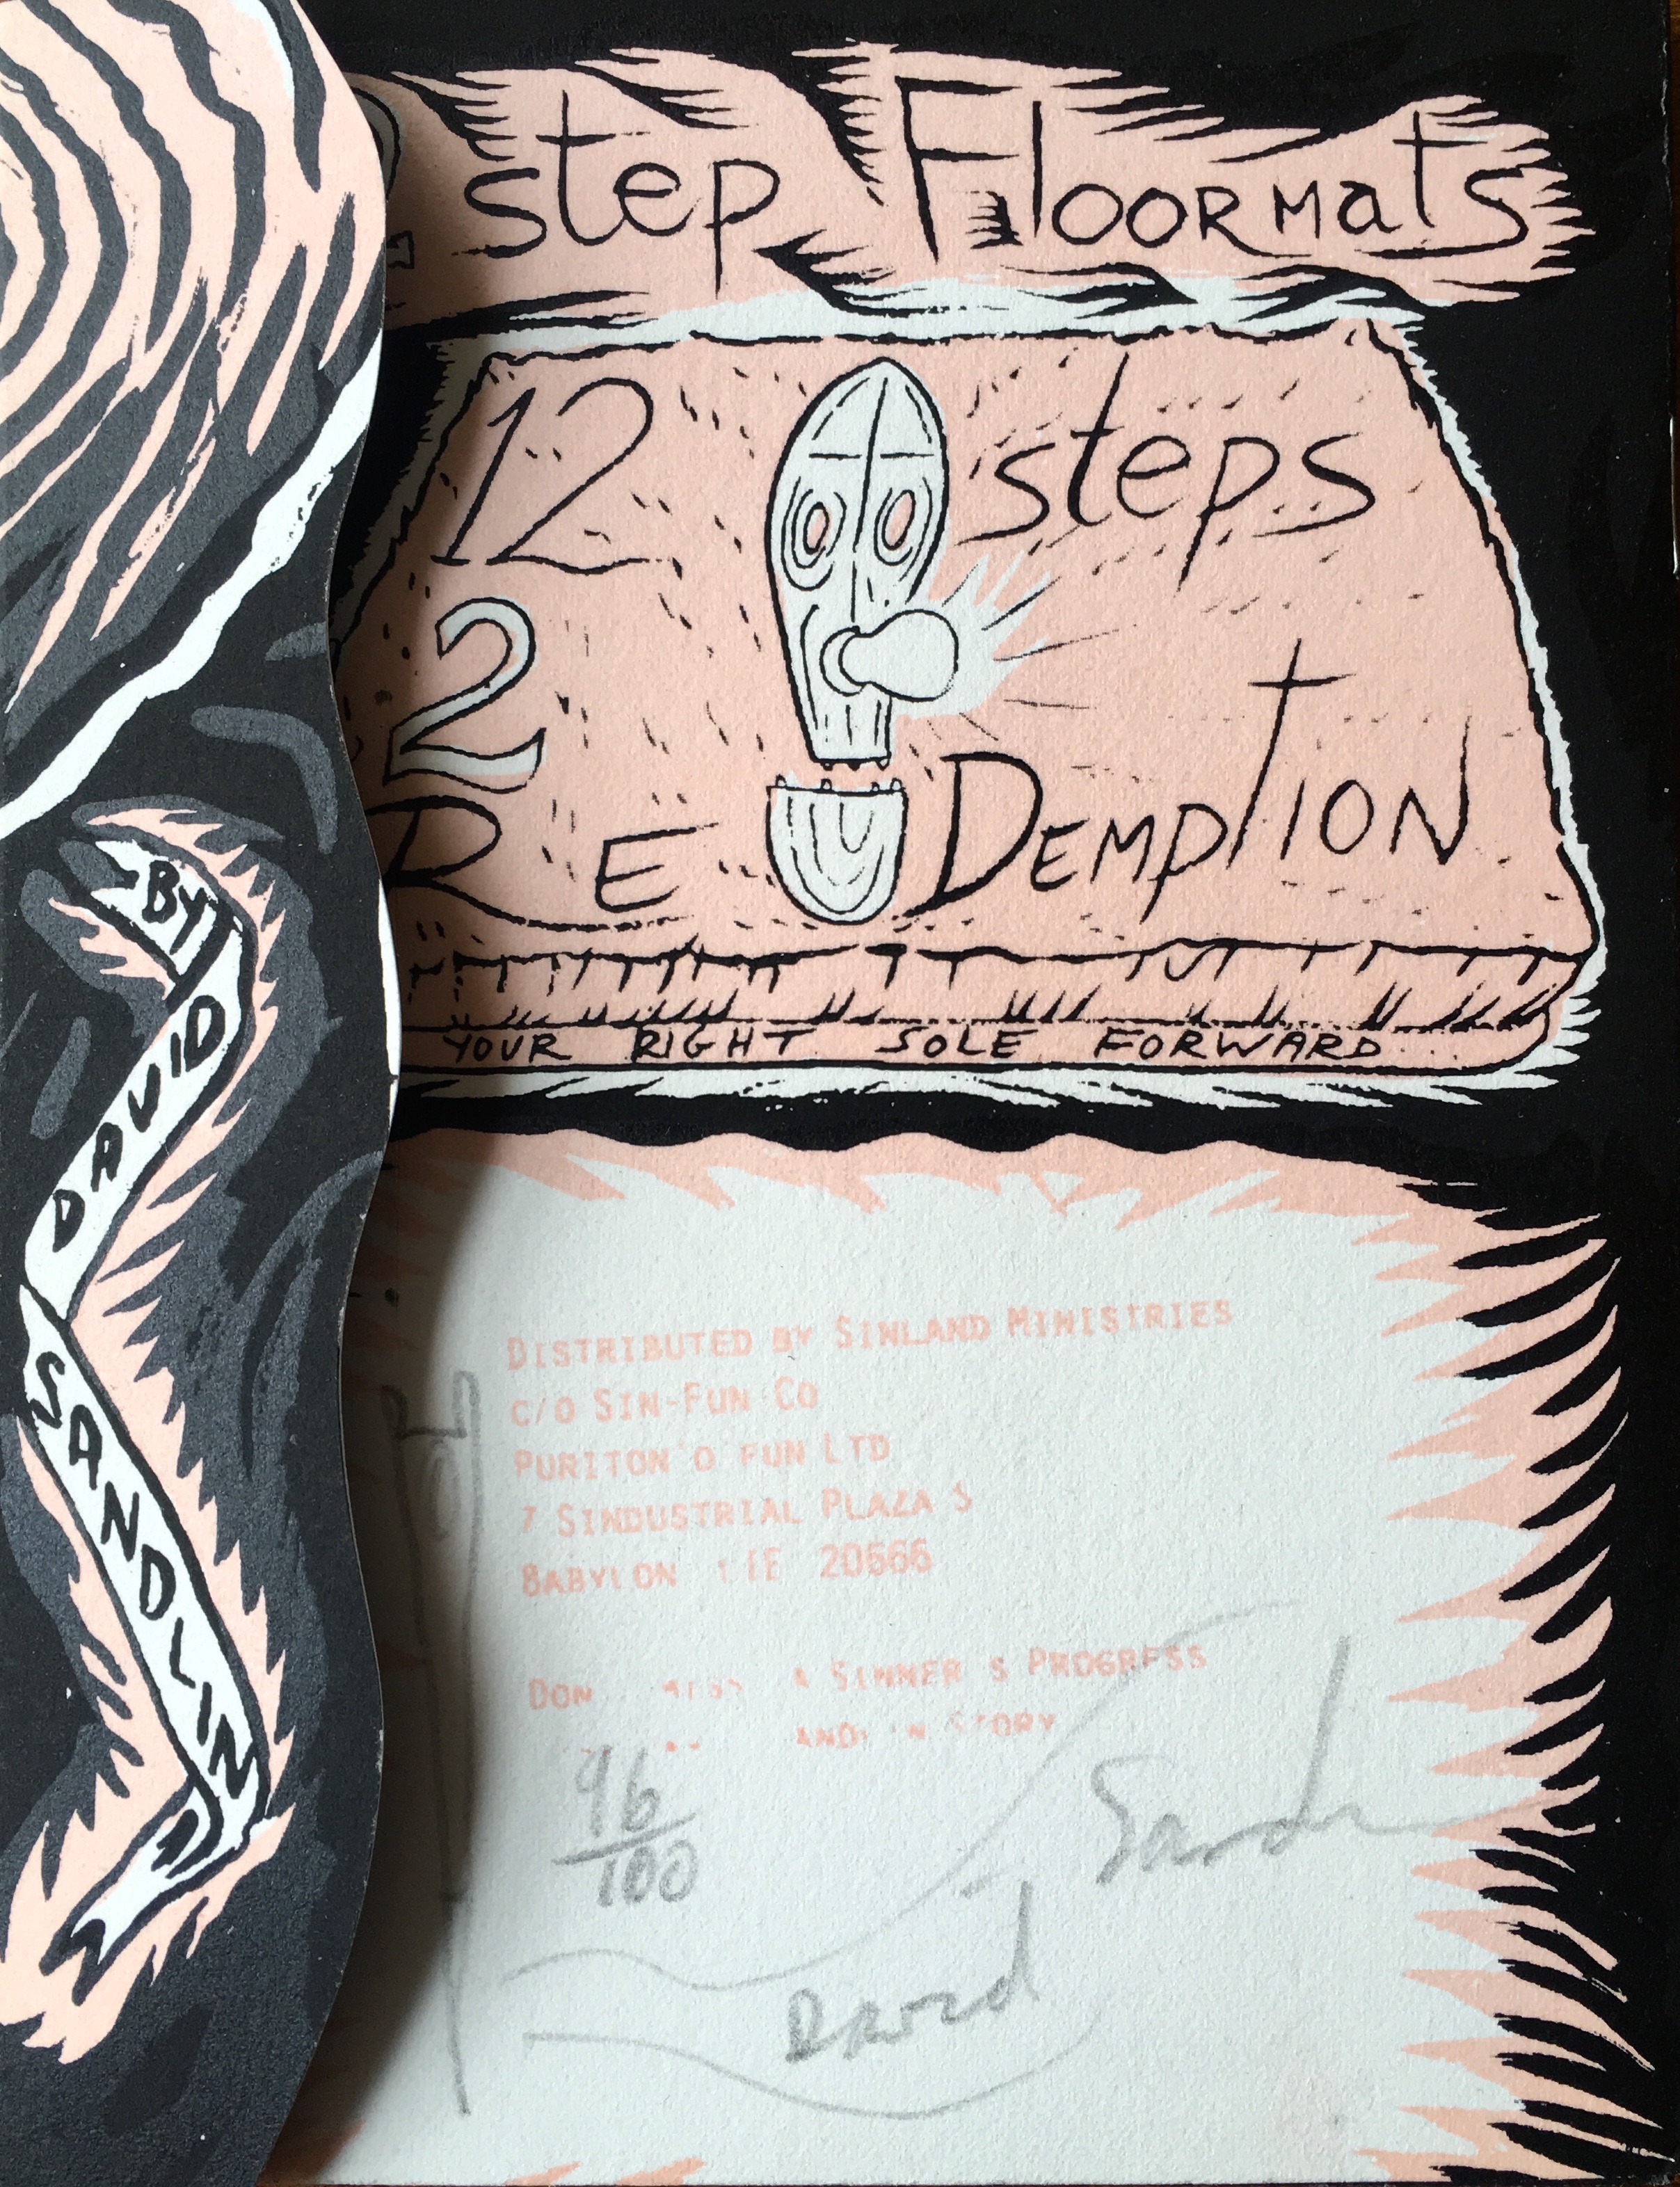 step Floormats
12 steps
2
REDEMPTION
YOUR RIGHT SOLE FORWARD
BY
DAVID
SANDLIN
DISTRIBUTED BY SINLAND MINISTRIES
C/O SIN-FUN CO
PURITON'O FUN LTD
7 SINDUSTRIAL PLAZA S
BABYLON 20666
A SINNER S PROGRESS
STORY
96/100
David
Sandl